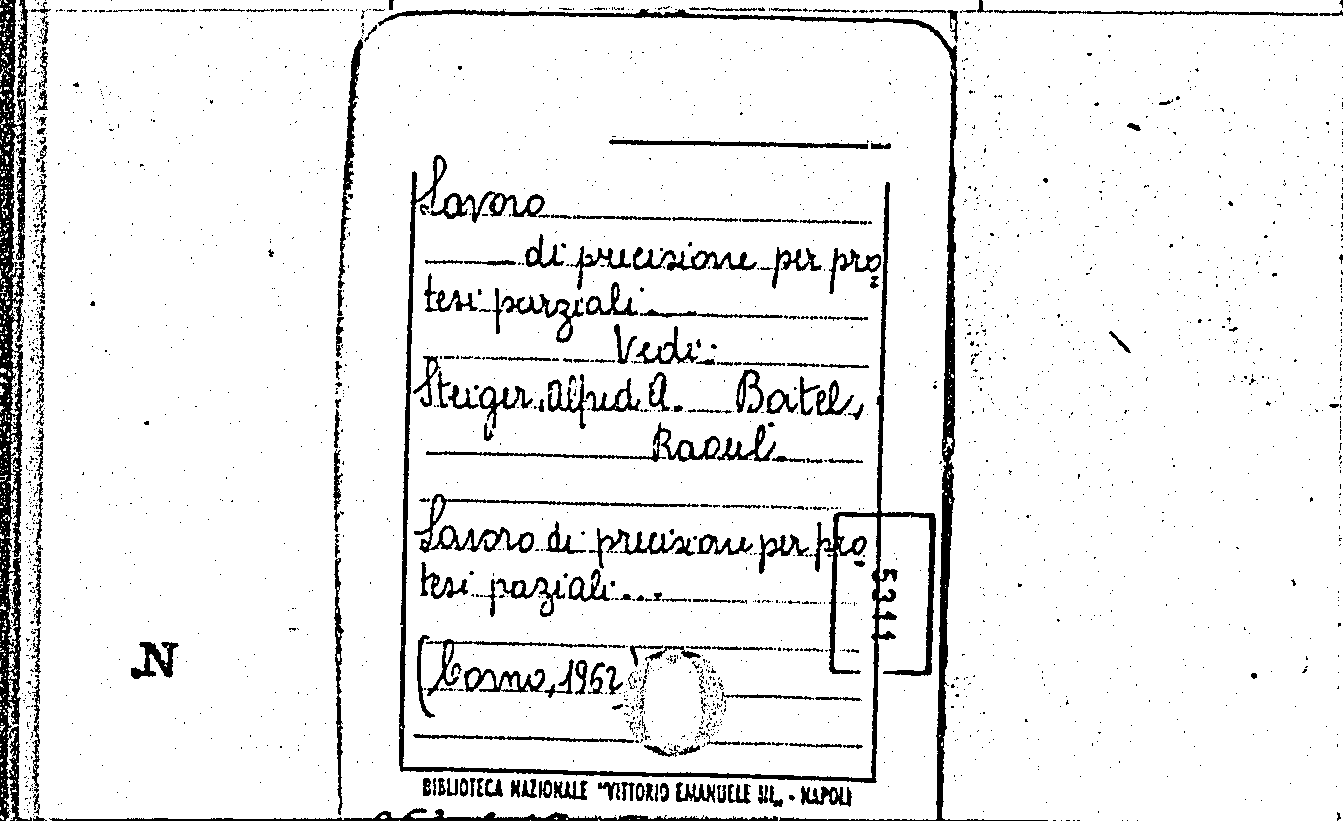 Lavoro
di precisione per pro
tesi parziali...
Vedi:
Steiger, Alfred A. Boitel,
Raoul.
Lavoro di precisione per pro
tesi paziali...
(Como, 1962
5311
.N
BIBLIOTECA NAZIONALE "VITTORIO EMANUELE III„ - NAPOLI